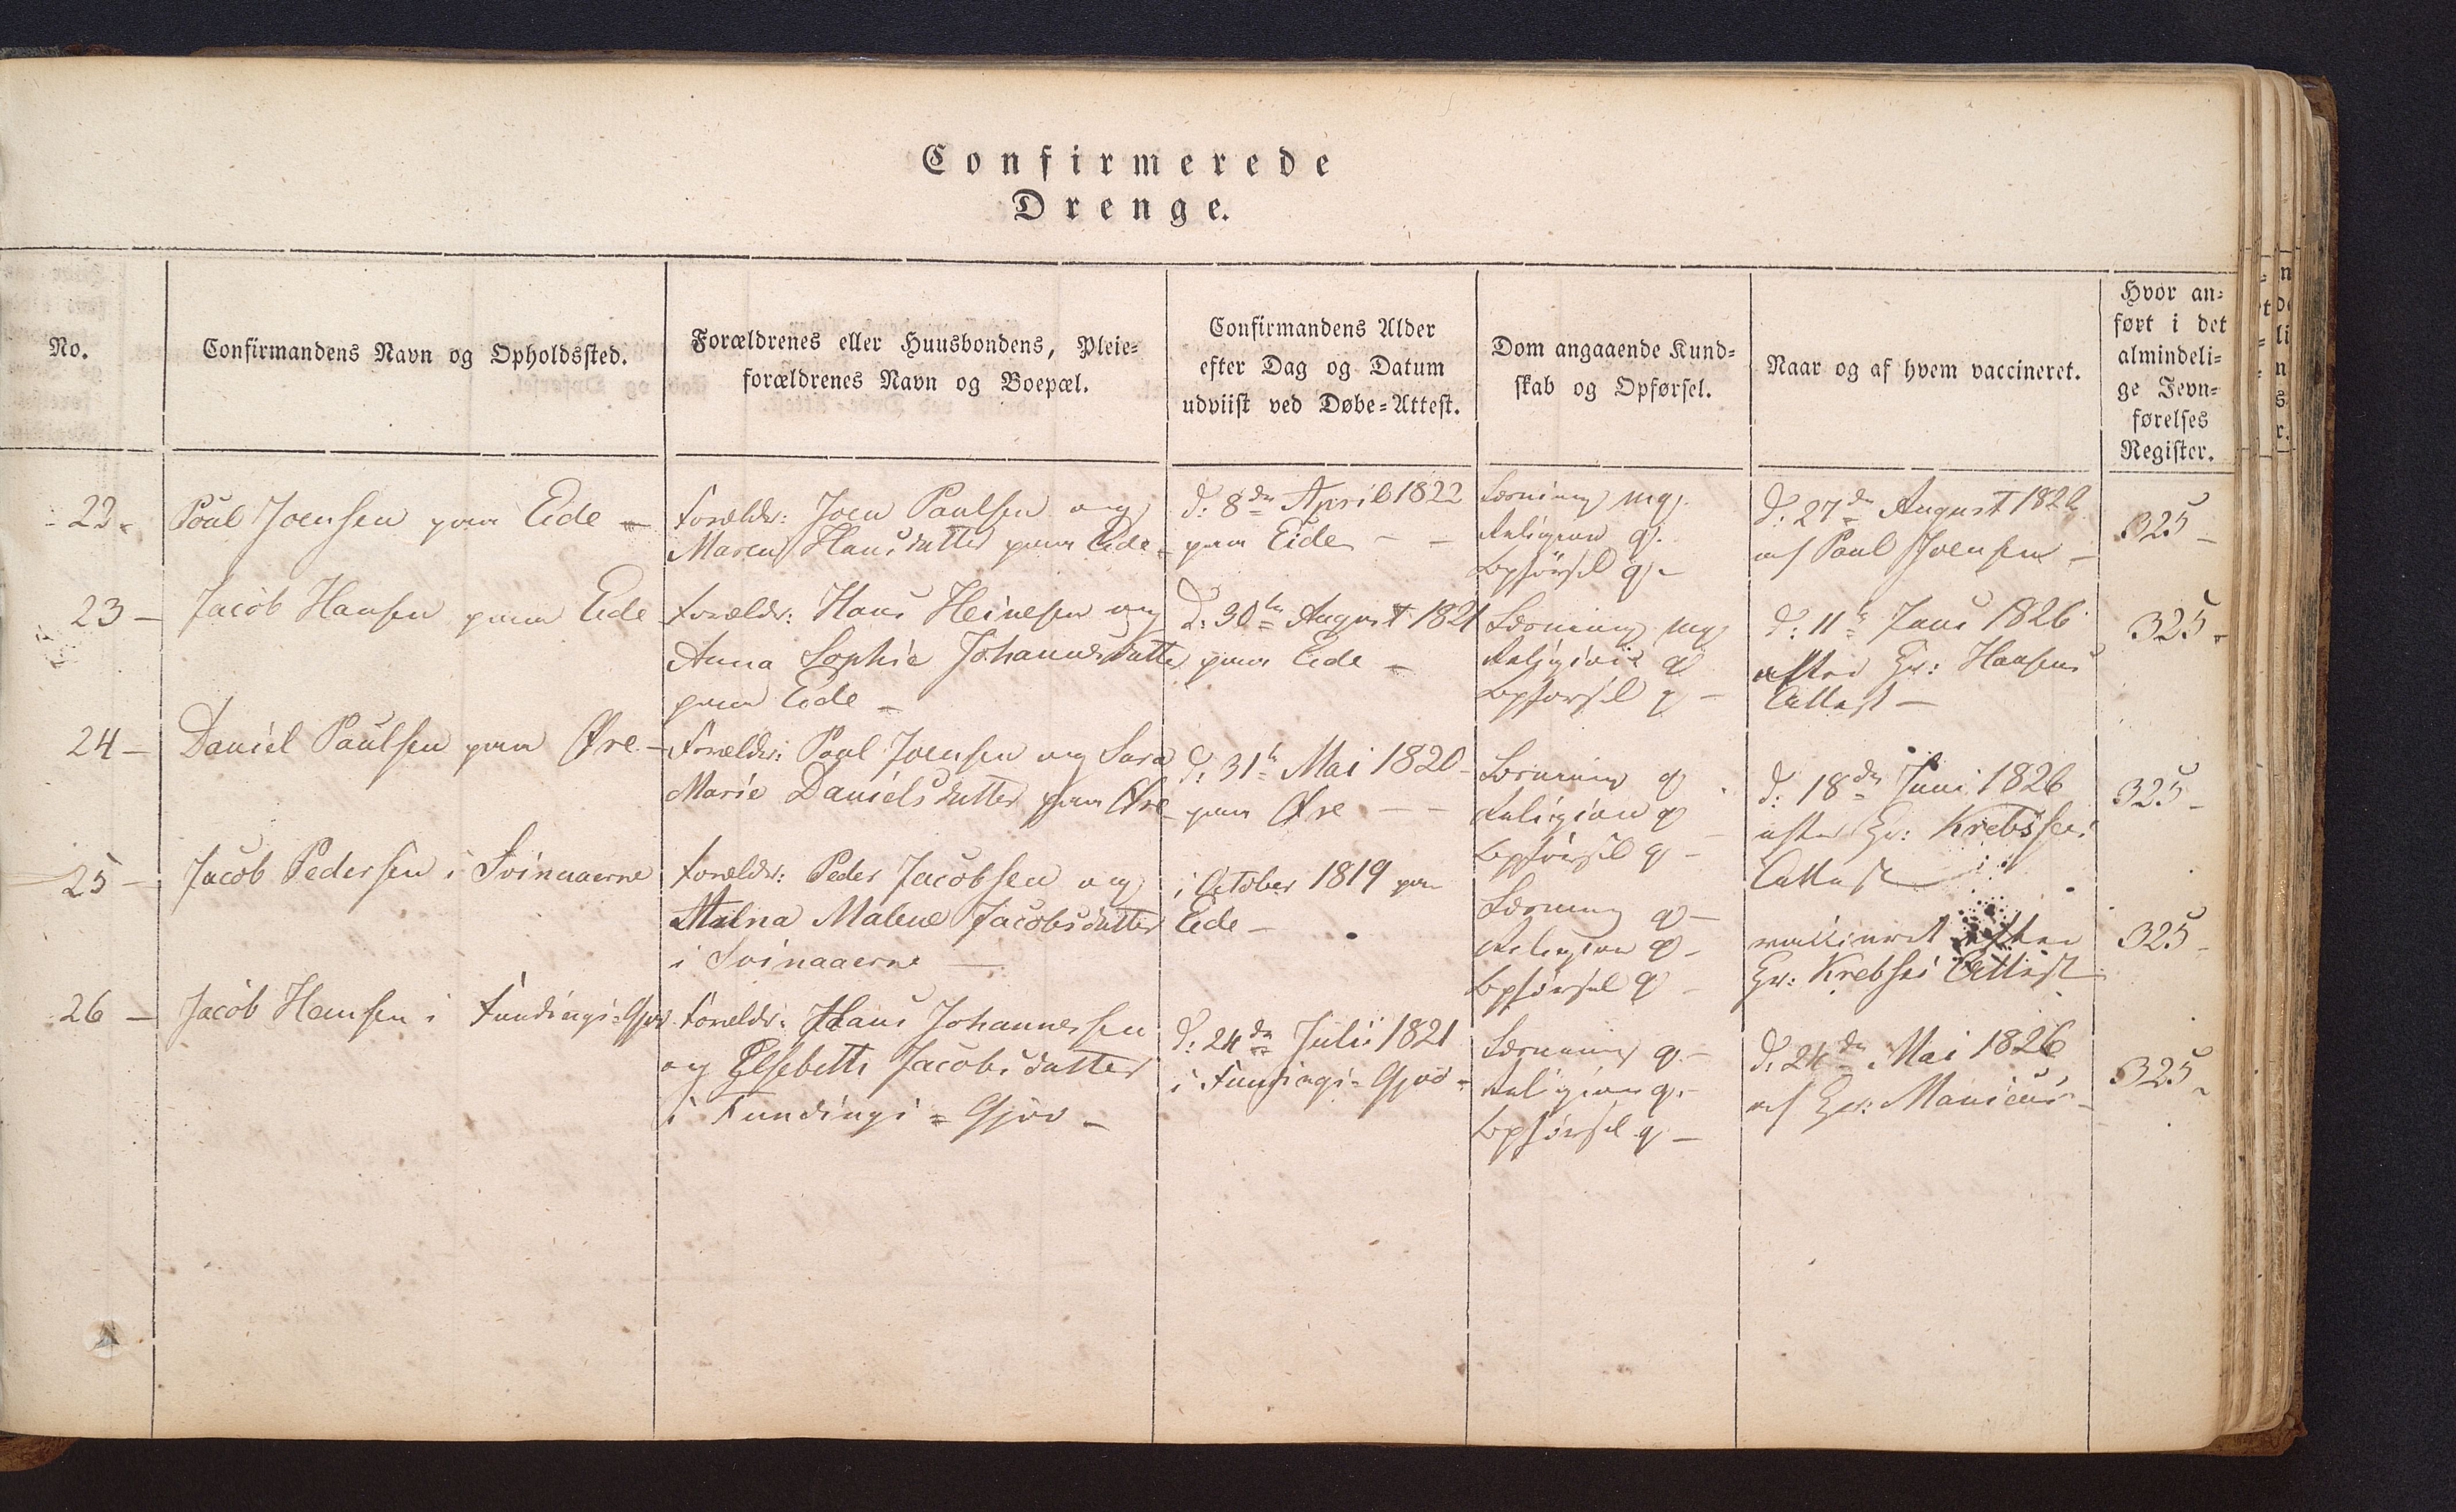 Confirmerede
Drenge.
No.
Confirmandens Navn og Opholdssted.
Forældrenes eller Huusbondens, Pleie=
forældrenes Navn og Boepæl.
Confirmandens Alder
efter Dag og Datum
udviist ved Døbe=Attest.
Dom angaaende Kund=
skab og Opførsel.
Naar og af hvem vaccineret.
Hvor an=
ført i det
almindeli=
ge Jevn=
førelses
Register.
22.
Poul Joensen paa Eide
Forældr: Joen Paulsen og
Maren Hansdatter paa Eide
d: 8de April 1822
paa Eide
Læsning mg.
Religion g.
Opførsel g.
d: 27de August 1822
af Paul Joensen
325
23
Jacob Hansen paa Eide
Forældr: Hans Heinesen og
Anna Sophie Johannesdatter
paa Eide
d: 30te August 1821
paa Eide
Læsning mg
Religion g
Opførsel g
d: 11te Juni 1826
efter Hr: Hansens
Attest
325
24
Daniel Paulsen paa Øre
Forældr: Poul Joensen og Sara
Marie Danielsdatter paa Øre
d: 31te Mai 1820
paa Øre
Læsning g
Religion g
Opførsel g
d: 18de Juni 1826
efter Hr: Krebs's
Attest
325
25
Jacob Pedersen i Svinaaerne
Forældr: Peder Jacobsen og
Malene Jacobsdatter
i Svinaaerne
i October 1819 paa
Eide
Læsning g
Religion g
Opførsel g
vaccineret efter
Hr: Krebses Attest
325
26
Jacob Hansen i Fundings=Gjov
Forældr: Hans Johannessen
og Elsebeth Jacobsdatter
i Fundings=Gjov
d: 24de Julii 1821
i Fundings=Gjov
Læsning g.
Religion g.
Opførsel g
d: 24de Mai 1826
af Hr: Manicus
325